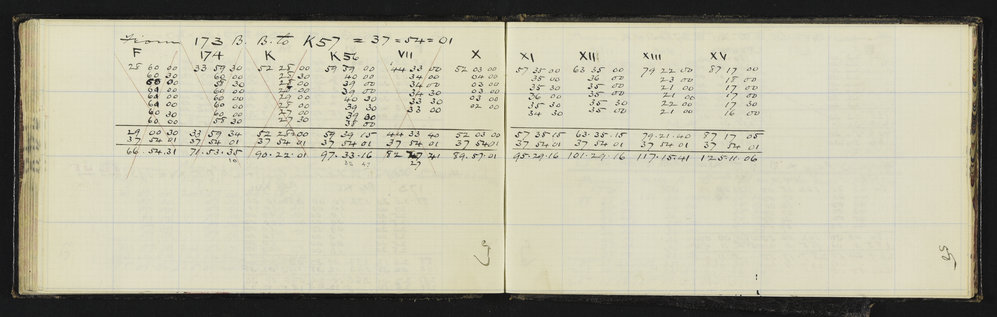 From 173 B. B. to K57 = 37=54=01
F 174 K K56 VII X XI XII XIII XV
28 60 00 33 59 30 52 25 00 59 39 00 44 33 00 52 03 00 57 35 00 63 35 00 79 22 00 87 17 00
60 30 60 00 25 30 40 00 34 00 04 00 35 00 36 00 23 00 18 00
60 00 59 30 25 00 39 00 34 00 03 00 35 30 35 00 21 00 17 00
60 00 39 00 34 30 03 00 35 00 35 00 21 00 17 00
60 00 40 30 33 30 03 00 36 00 21 00 17 00
60 00 60 00 25 00 39 00 33 00 02 00 35 30 35 30 22 00 17 30
60 30 60 00 27 00 39 30 34 30 35 00 21 00 16 00
60 00 27 30 38 00
29 00 30 33 59 34 52 25 00 59 39 15 44 33 40 52 03 00 57 35 15 63.35.15 79.21.40 87 17 05
37 54 01 37 54 01 37 54 01 37 54 01 37 54 01 37 54 01 37 54 01 37 54 01 37 54 01 37 54 01
66.54.31 71.53.35 90.22.01 97.33.16 82 27 41 89.57.01 95.29.16 101.29.16 117.15.41 125.11.06
27